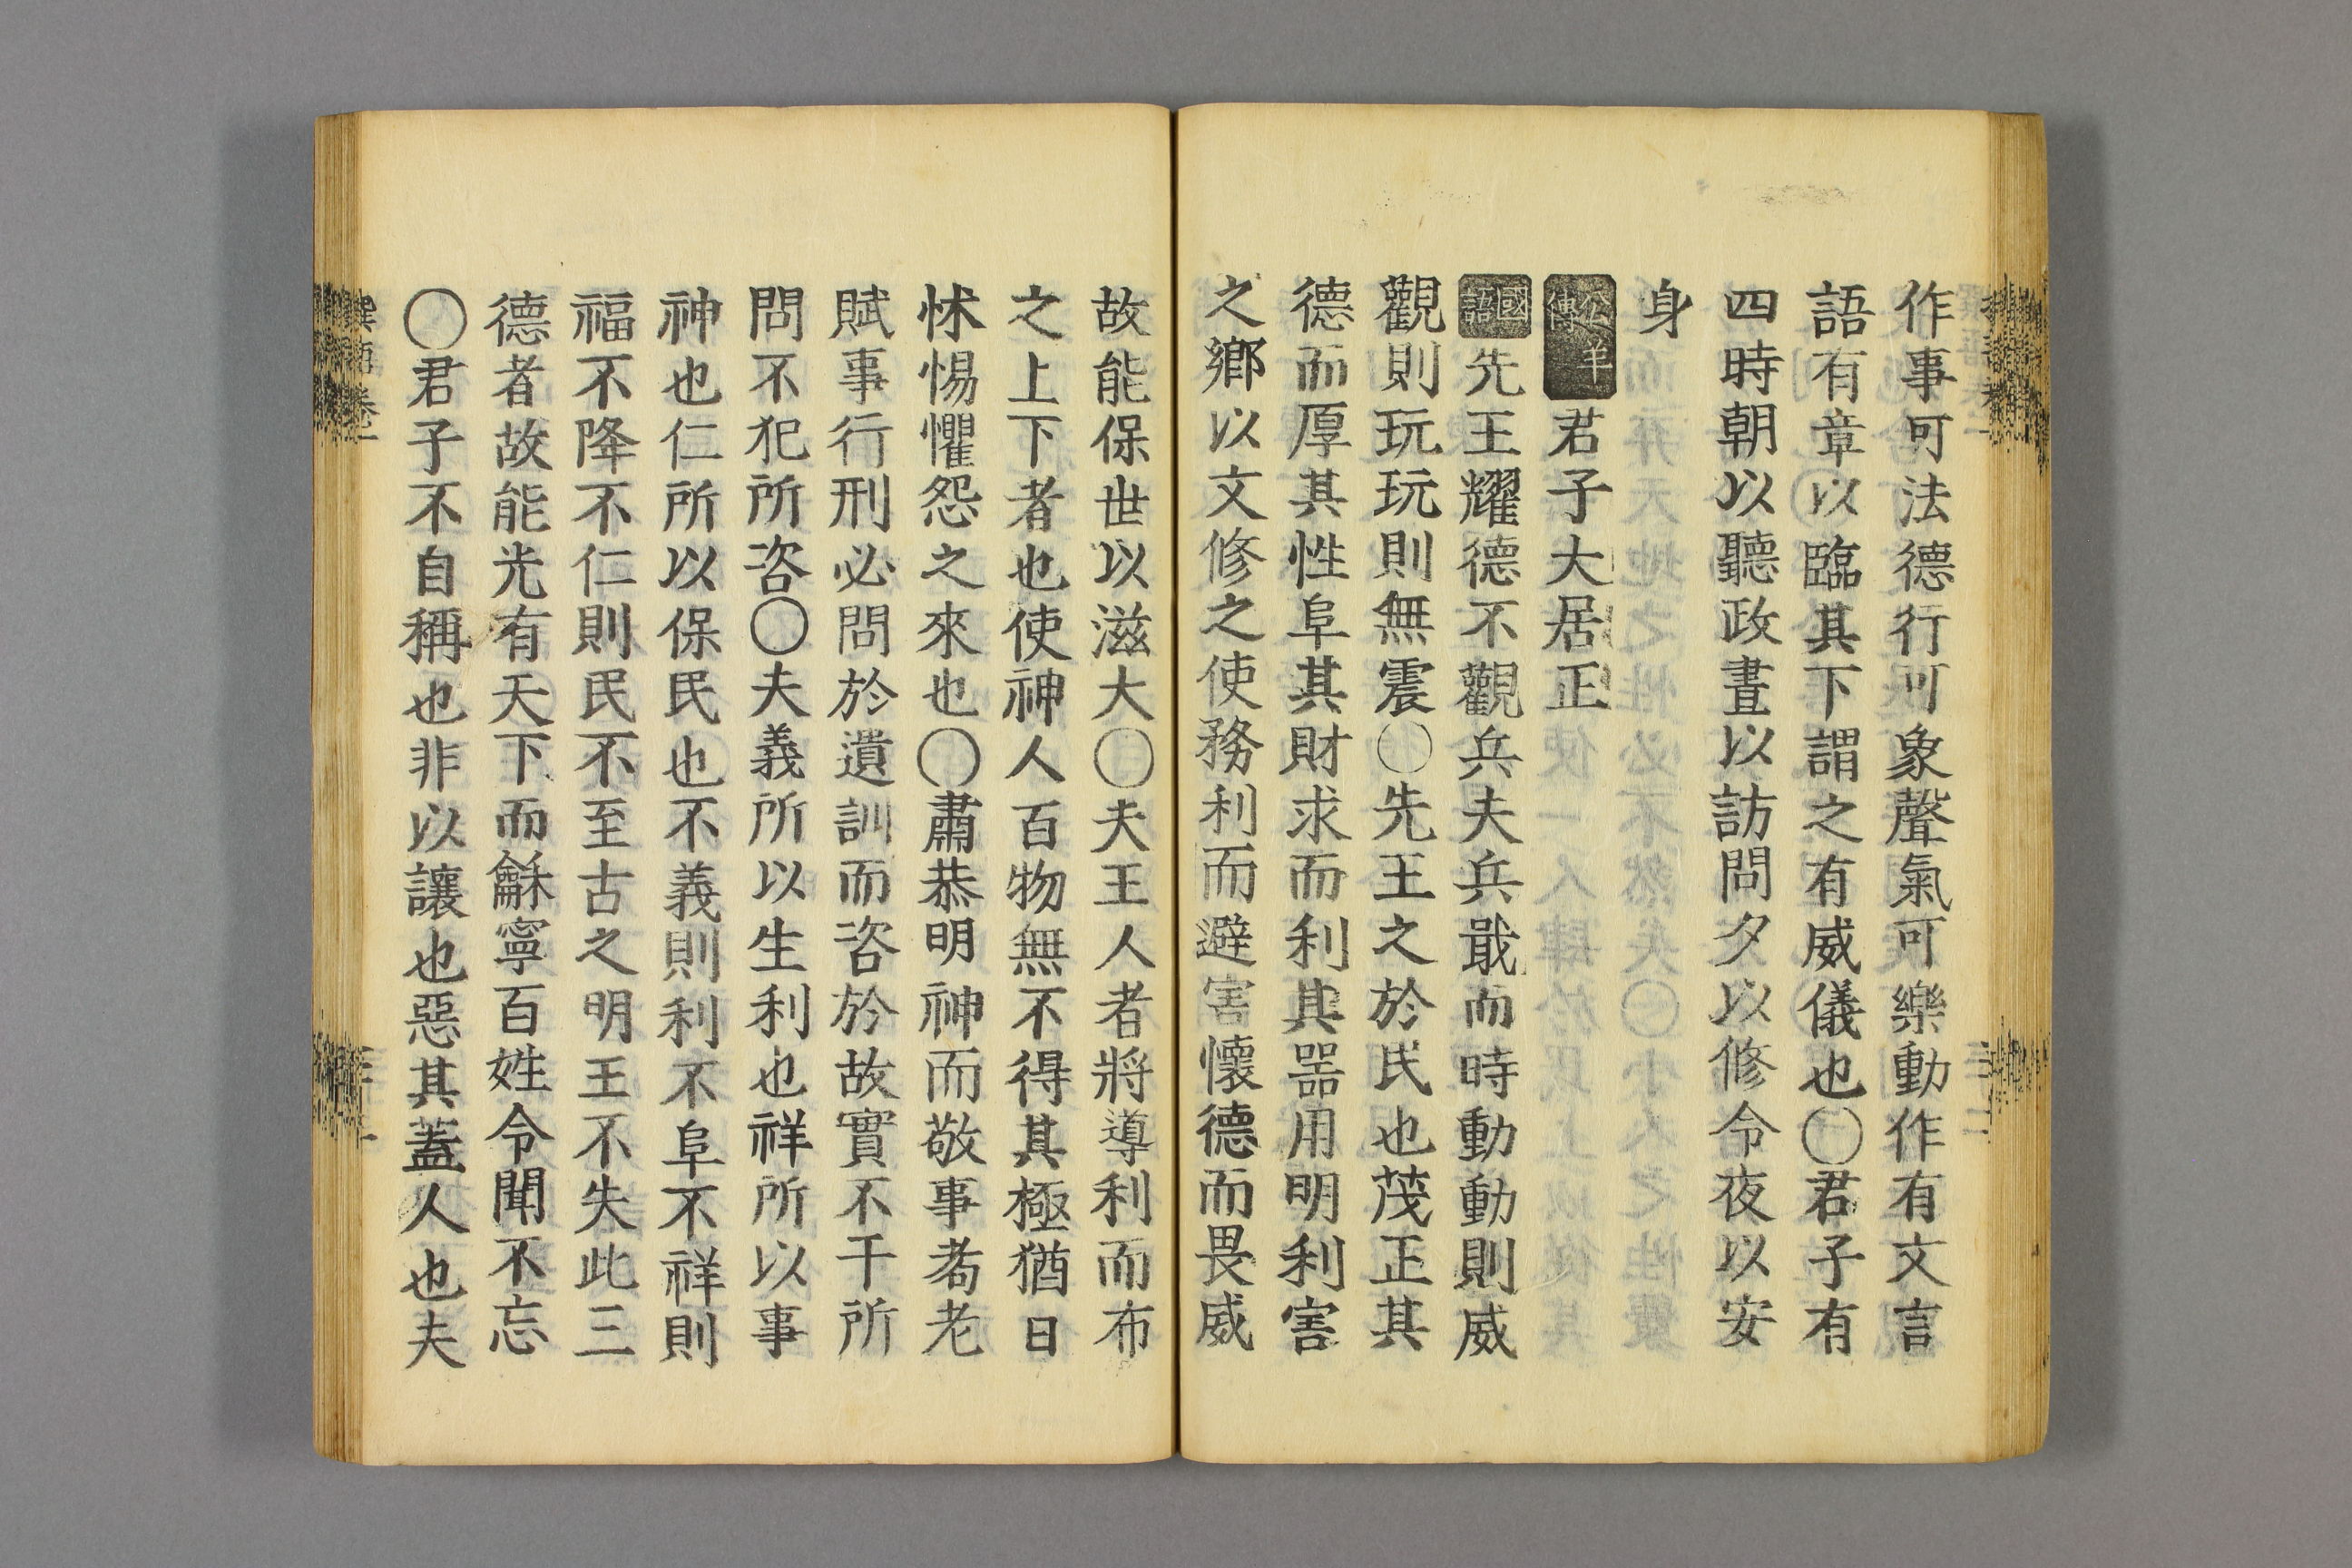 作事可法德行可象聲氣可樂動作有文言
語有章以臨其下謂之有威儀也〇君子有
四時朝以聽政晝以訪問夕以修令夜以安
身
公羊傳 君子大居正
國語 先王耀德不觀兵夫兵戢而時動動則威
觀則玩玩則無震〇先王之於民也茂正其
德而厚其性阜其財求而利其器用明利害
之鄉以文修之使務利而避害懷德而畏威
故能保世以滋大〇夫王人者將導利而布
之上下者也使神人百物無不得其極猶日
怵惕懼怨之來也〇肅恭明神而敬事耇老
賦事行刑必問於遺訓而咨於故實不干所
問不犯所咨〇夫義所以生利也祥所以事
神也仁所以保民也不義則利不阜不祥則
福不降不仁則民不至古之明王不失此三
德者故能光有天下而龢寧百姓令聞不忘
〇君子不自稱也非以讓也惡其蓋人也夫